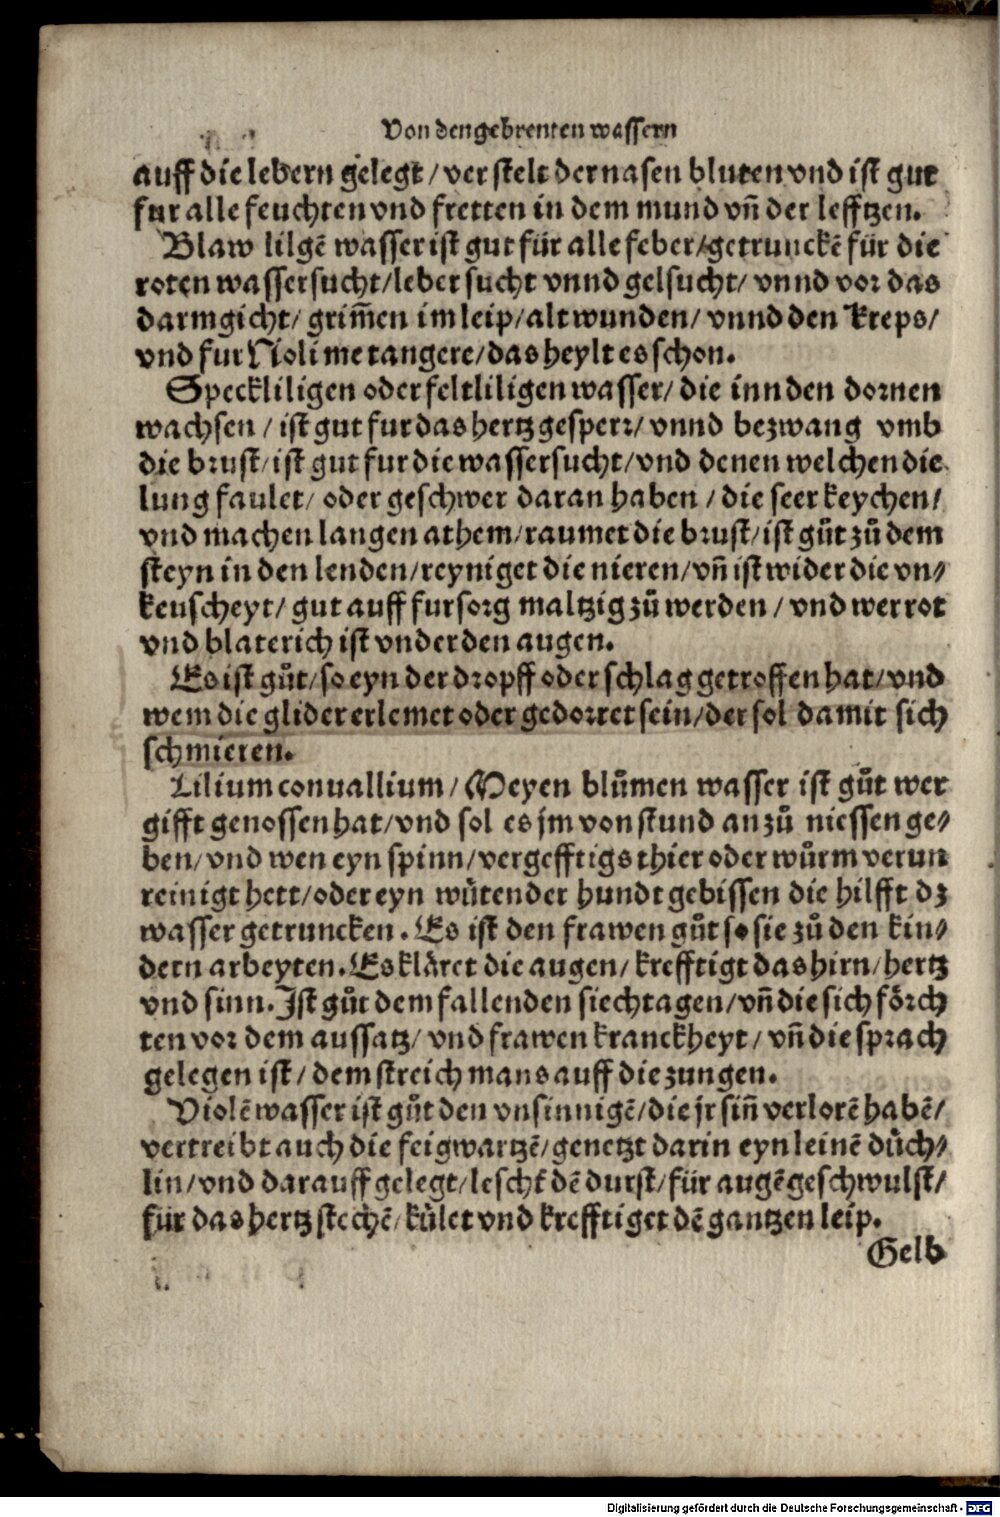 Von den gebrenten wassern
auff die lebern gelegt / verstelt der nasen bluten vnd ist gut
fur alle feuchten vnd fretten in dem mund vñ der lefftzen.
Blaw lilgẽ wasser ist gut für alle feber / getrunckẽ für die
roten wassersucht / lebersucht vnnd gelsucht / vnnd vor das
darmgicht / grim̃en im leip / alt wunden / vnnd den kreps /
vnd fur Noli me tangere / das heylt es schon.
Speckliligen oder feltliligen wasser / die inn den dornen
wachsen / ist gut fur das hertz gesperr / vnnd bezwang vmb
die brust / ist gut fur die wassersucht / vnd denen welchen die
lung faulet / oder geschwer daran haben / die seer keychen /
vnd machen langen athem / raumet die brust / ist gůt zů dem
steyn in den lenden / reyniget die nieren / vñ ist wider die vn⸗
keuscheyt / gut auff fursorg maltzig zů werden / vnd wer rot
vnd blaterich ist vnder den augen.
Es ist gůt / so eyn der dropff oder schlag getroffen hat / vnd
wem die glider erlemet oder gedorret sein / der sol damit sich
schmieren.
Lilium conuallium / Meyen blůmen wasser ist gůt wer
gifft genossen hat / vnd sol es jm von stund an zů niessen ge⸗
ben / vnd wen eyn spinn / vergefftigs thier oder wůrm verun
reinigt hett / oder eyn wůtender hundt gebissen die hilfft dz
wasser getruncken. Es ist den frawen gůt so sie zů den kin⸗
dern arbeyten. Es kläret die augen / krefftigt das hirn / hertz
vnd sinn. Ist gůt dem fallenden siechtagen / vñ die sich förch
ten vor dem aussatz / vnd frawen kranckheyt / vñ die sprach
gelegen ist / dem streich mans auff die zungen.
Violẽ wasser ist gůt den vnsinnigẽ / die jr siñ verlorẽ habẽ /
vertreibt auch die feigwartzẽ / genetzt darin eyn leinẽ důch⸗
lin / vnd darauff gelegt / lescht dẽ durst / für augẽ geschwulst /
für das hertz stechẽ / kůlet vnd krefftiget dẽ gantzen leip.
Gelb
Digitalisierung gefördert durch die Deutsche Forschungsgemeinschaft - DFG